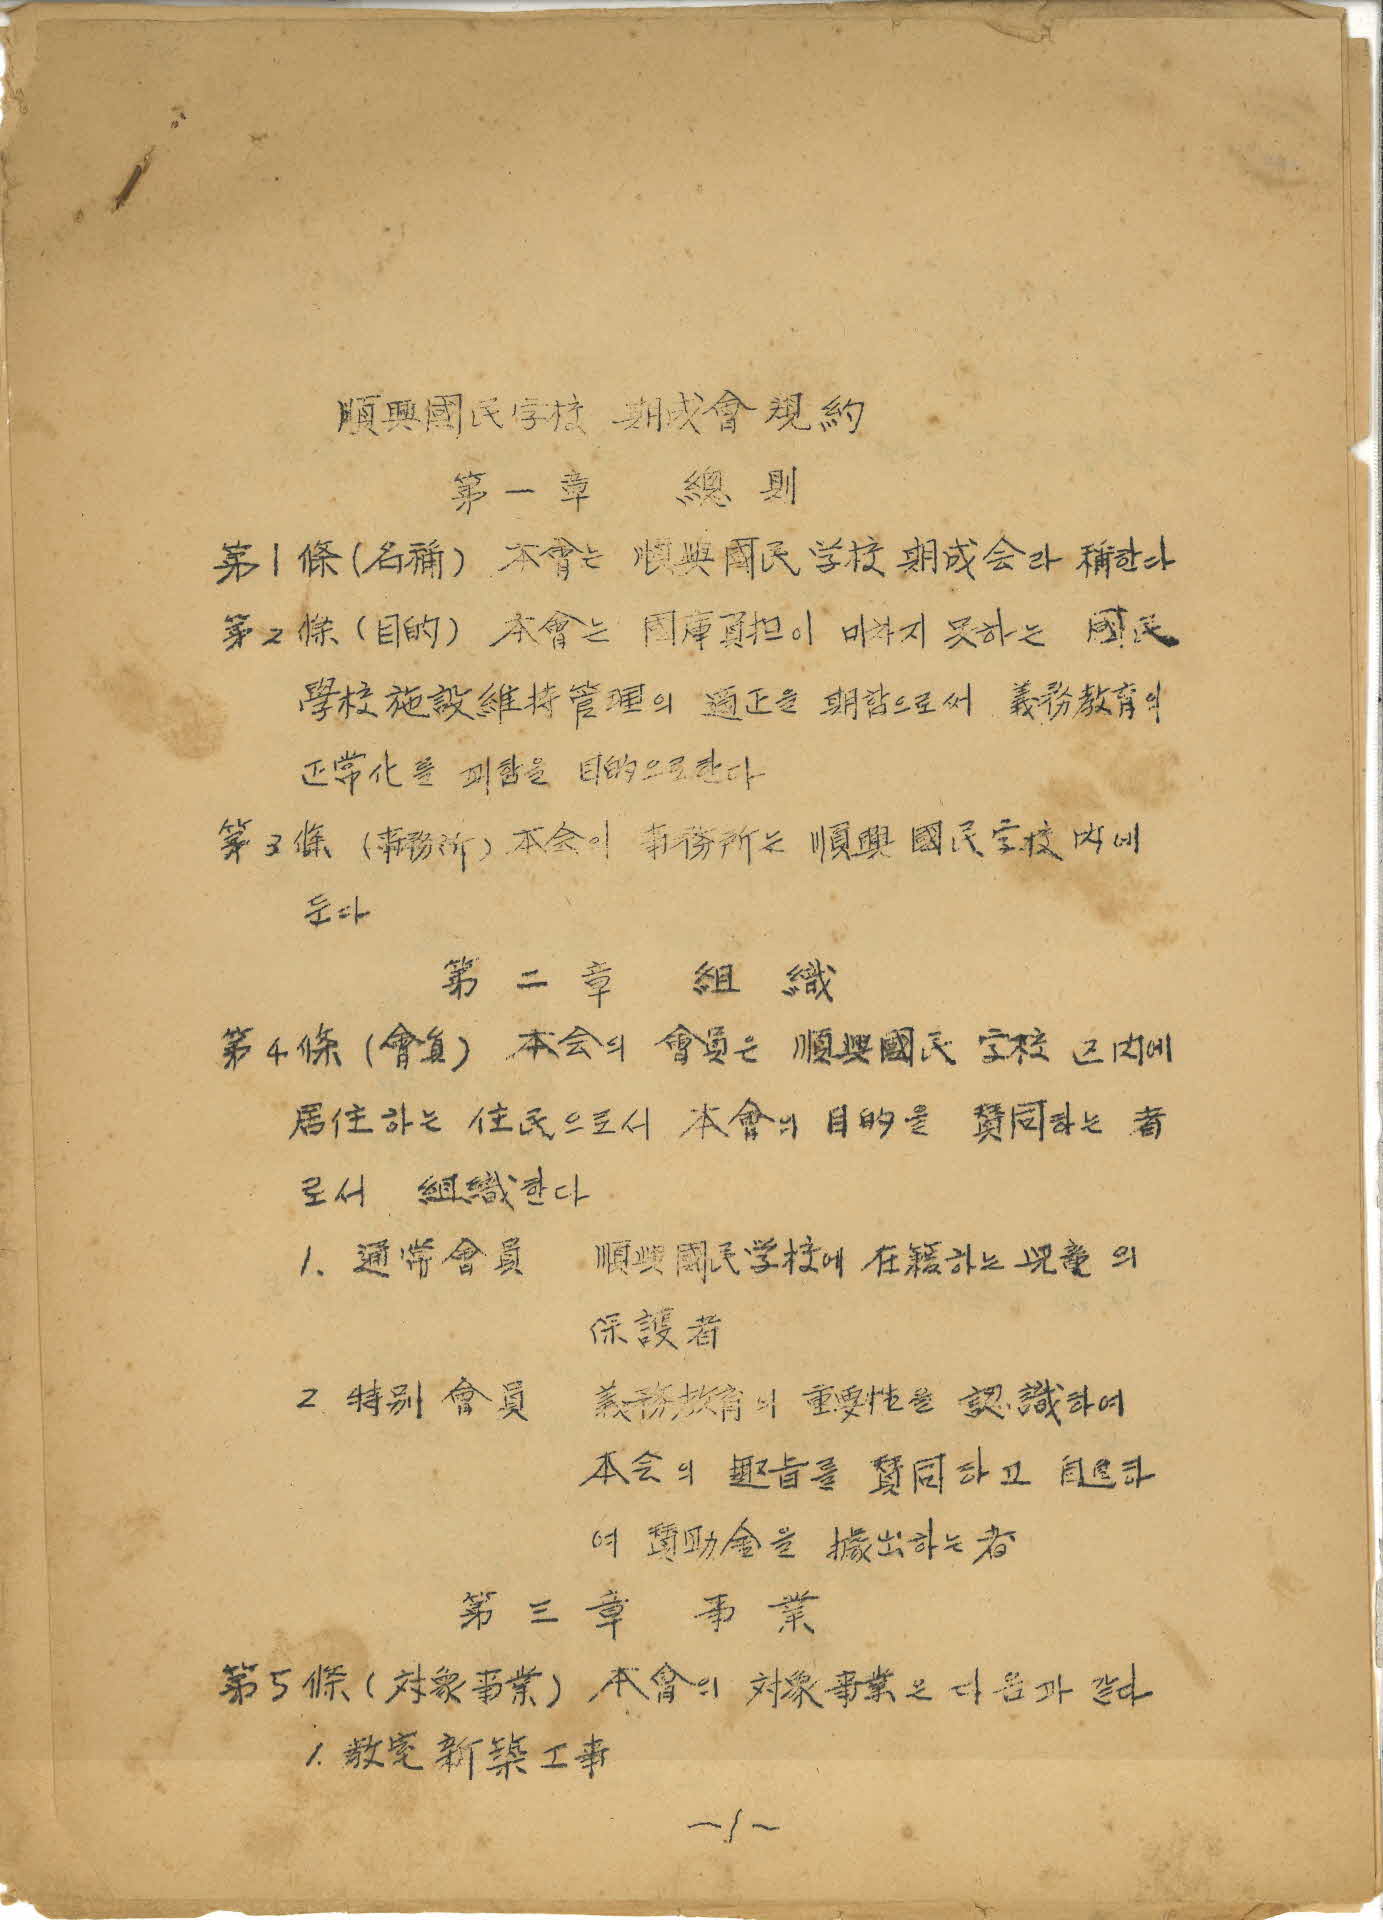 順興國民学校 期成會規約
第一章 總則
第1條(名稱) 本會는 順興國民学校期成会라 稱한다
第2條(目的) 本會는 國庫負担이 미치지 못하는 國民
學校施設維持管理의 適正을 期함으로써 義務教育의
正常化를 꾀함을 目的으로한다
第3條 (事務所) 本会의 事務所는 順興國民学校內에
둔다
第二章 組織
第4條(會員) 本会의 會員은 順興國民学校 区內에
居住하는 住民으로서 本會의 目的을 賛同하는 者
로서 組織한다
1. 通常會員 順興國民学校에 在籍하는 児童의
保護者
2 特別會員 義務教育의 重要性을 認識하여
本会의 趣旨를 賛同하고 自進하
여 賛助金을 據出하는者
第三章 事業
第5條(対象事業) 本會의 対象事業은 다음과 같다
1. 教室新築工事
~1~